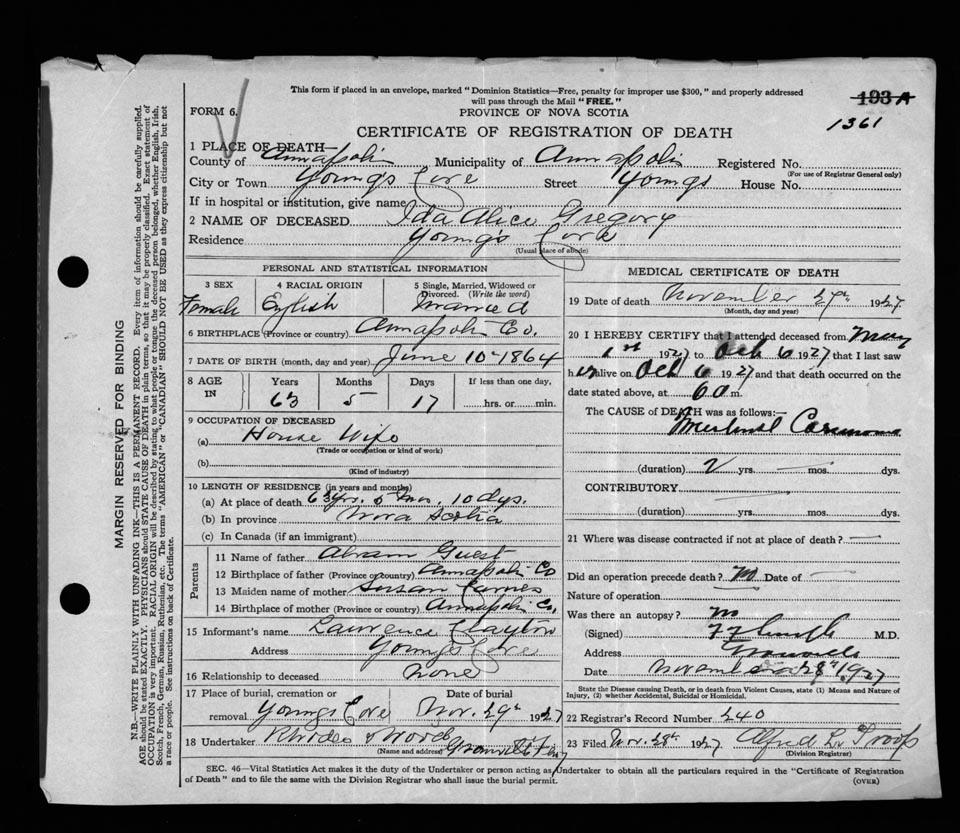 This form if placed in an envelope, marked "Dominion Statistics—Free, penalty for improper use $300," and properly addressed
will pass through the Mail "FREE."
193 A
FORM 6.
PROVINCE OF NOVA SCOTIA
1361
CERTIFICATE OF REGISTRATION OF DEATH
1 PLACE OF DEATH—
County of Annapolis Municipality of Annapolis Registered No.
(For use of Registrar General only)
City or Town Young's Cove Street Youngs House No.
If in hospital or institution, give name
2 NAME OF DECEASED Ida Alice Gregory
Residence Young's Cove
(Usual place of abode)
PERSONAL AND STATISTICAL INFORMATION
3 SEX 4 RACIAL ORIGIN 5 Single, Married, Widowed or
Divorced. (Write the word)
Female English Married
6 BIRTHPLACE (Province or country) Annapolis Co.
7 DATE OF BIRTH (month, day and year) June 10-1864
8 AGE IN Years Months Days If less than one day,
63 5 17 hrs. or min.
9 OCCUPATION OF DECEASED
(a) House Wife
(Trade or occupation or kind of work)
(b)
(Kind of industry)
10 LENGTH OF RESIDENCE (in years and months)
(a) At place of death 63 yr. 5 mo. 10 dys.
(b) In province Nova Scotia
(c) In Canada (if an immigrant)
Parents
11 Name of father Abram Guest
12 Birthplace of father (Province or country) Annapolis Co
13 Maiden name of mother Susan
14 Birthplace of mother (Province or country) Annapolis Co.
15 Informant's name Lawrence Clayton
Address Young's Cove
16 Relationship to deceased none
17 Place of burial, cremation or Date of burial
removal Youngs Cove Nov. 29th 1927
18 Undertaker Rhodes &
(Name and address) Granville Ferry
MEDICAL CERTIFICATE OF DEATH
19 Date of death November 27th 1927
(Month, day and year)
20 I HEREBY CERTIFY that I attended deceased from May
1st 1927 to Oct 6 1927 that I last saw
her alive on Oct 6 1927 and that death occurred on the
date stated above, at 6 a m.
The CAUSE of DEATH was as follows:—
(duration) 2 yrs. — mos. dys.
CONTRIBUTORY
(duration) yrs. mos. dys.
21 Where was disease contracted if not at place of death? —
Did an operation precede death? no Date of —
Nature of operation
Was there an autopsy? no
(Signed) M.D.
Address Granville
Date November 28th 1927
State the Disease causing Death, or in death from Violent Causes, state (1) Means and Nature of
Injury, (2) whether Accidental, Suicidal or Homicidal.
22 Registrar's Record Number 240
23 Filed Nov. 28th 1927 Alfred L. Troop
(Division Registrar)
SEC. 46—Vital Statistics Act makes it the duty of the Undertaker or person acting as Undertaker to obtain all the particulars required in the "Certificate of Registration
of Death" and to file the same with the Division Registrar who shall issue the burial permit.
(OVER)
MARGIN RESERVED FOR BINDING
N.B.—WRITE PLAINLY WITH UNFADING INK—THIS IS A PERMANENT RECORD. Every item of information should be carefully supplied.
AGE should be stated EXACTLY. PHYSICIANS should STATE CAUSE OF DEATH in plain terms, so that it may be properly classified. Exact statement of
OCCUPATION is very important. RACIAL ORIGIN will be described by stating to what people or tongue the deceased person belonged, whether English, Irish,
Scotch, French, German, Russian, Ruthenian, etc. The terms "AMERICAN" or "CANADIAN" SHOULD NOT BE USED as they express citizenship but not
a race or people. See instructions on back of Certificate.